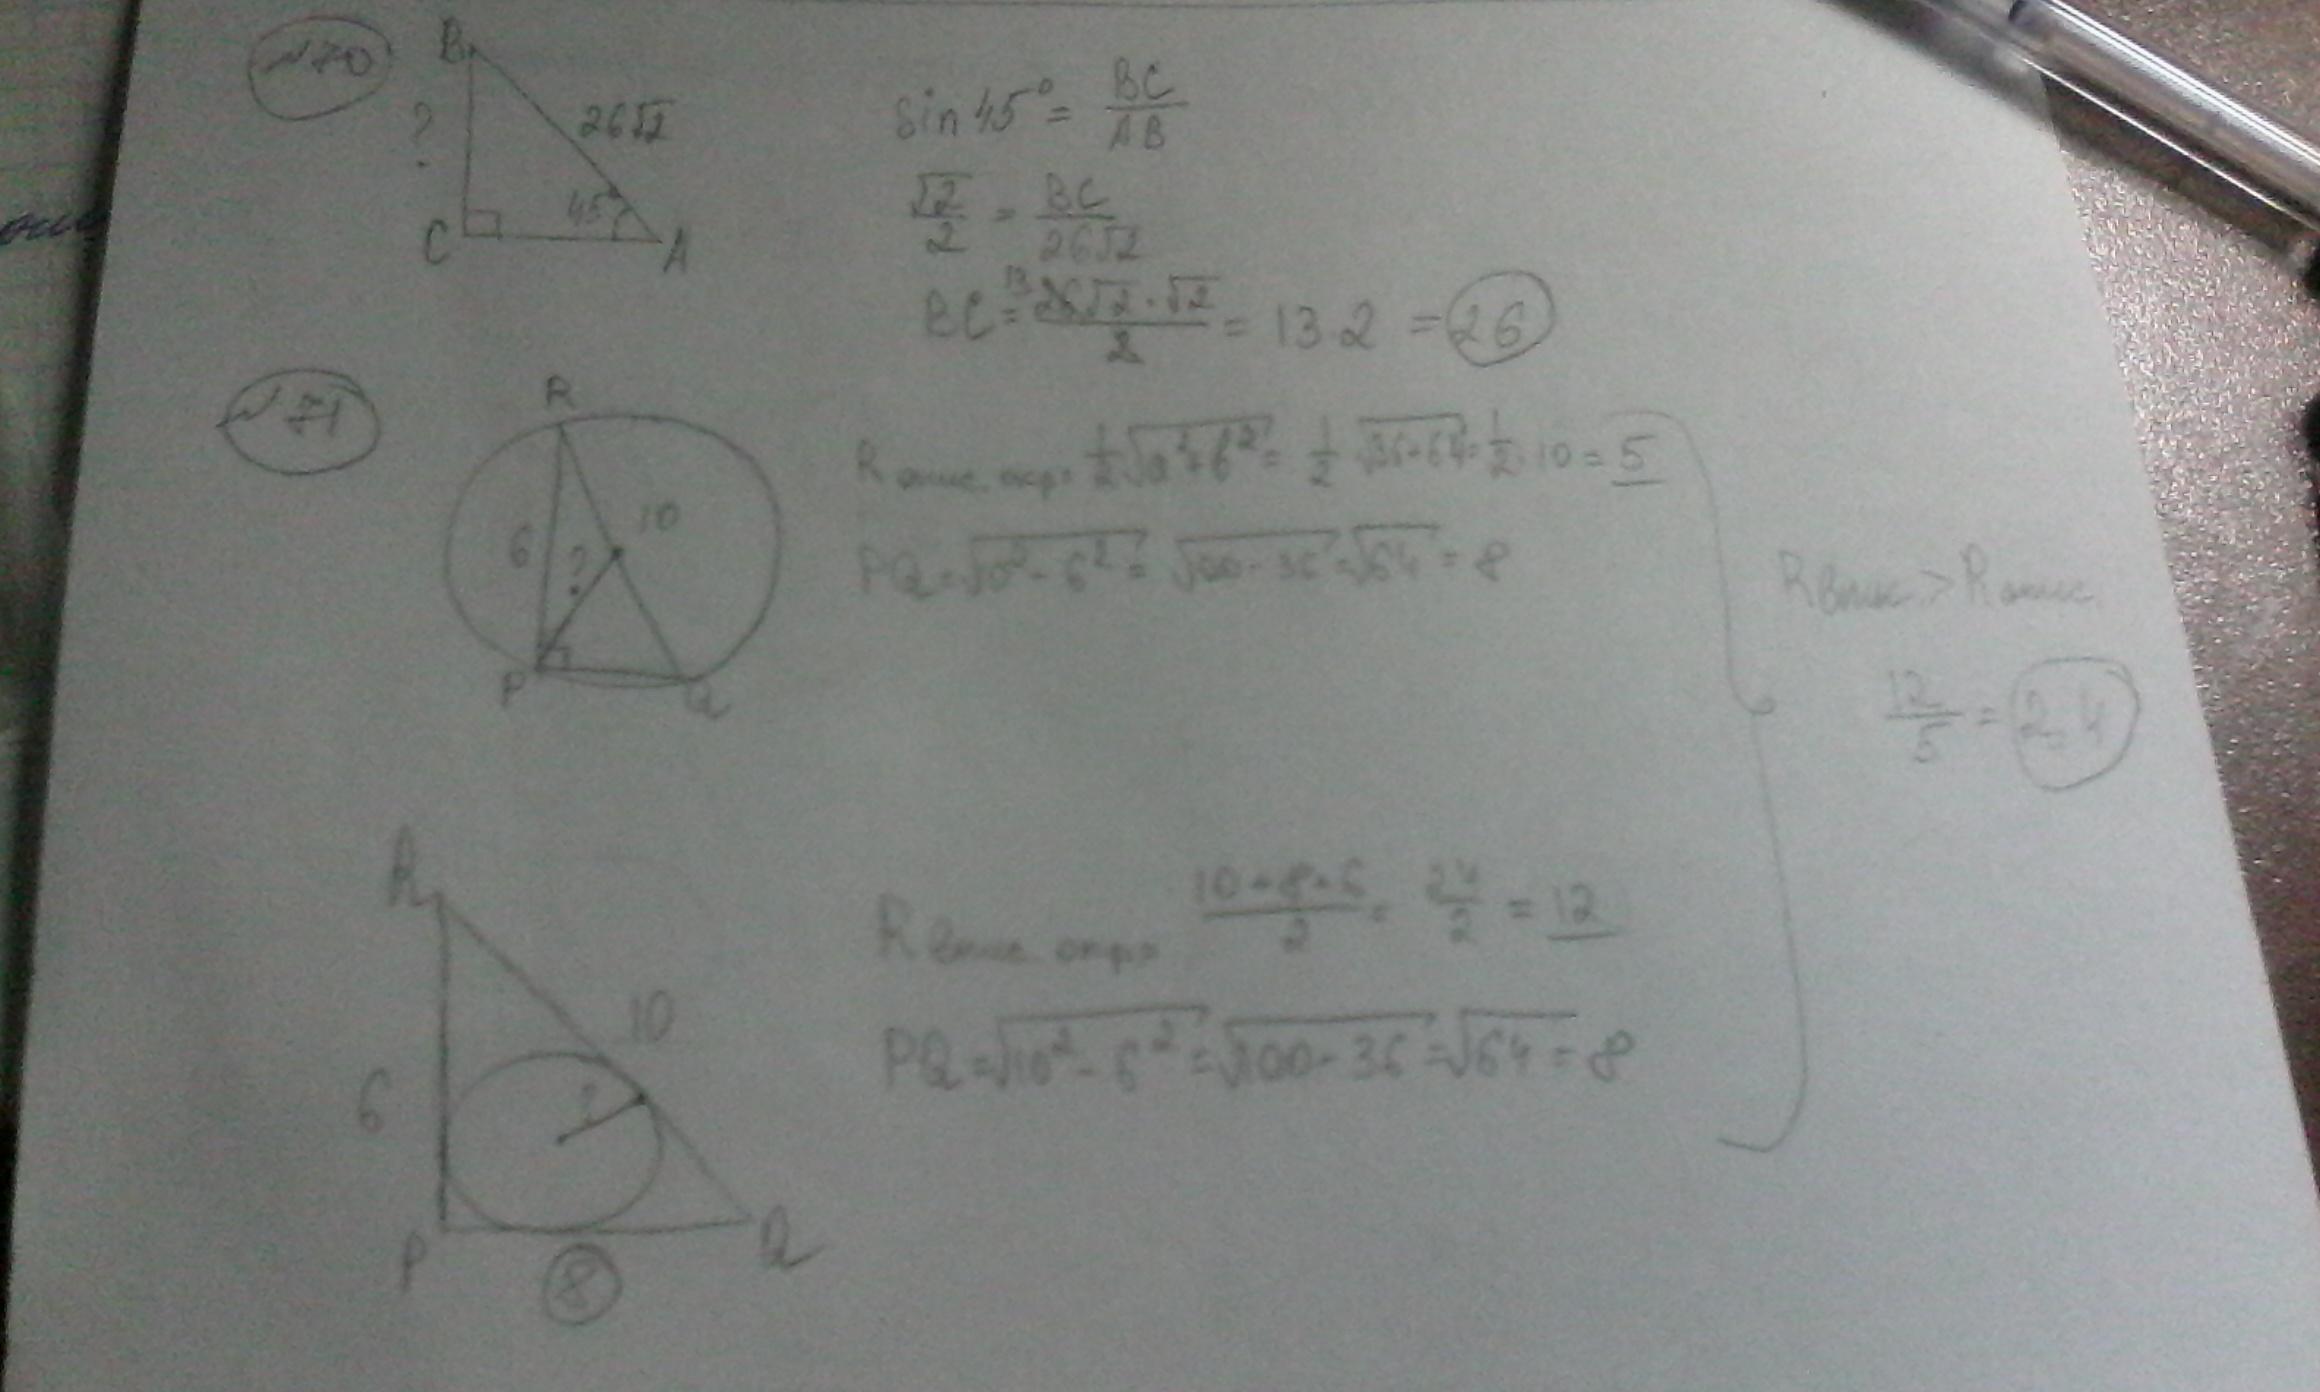 №70
B
?
26√2
45°
C
A
sin 45° = BC/AB
√2/2 = BC/26√2
BC = 26√2·√2/2 = 13·2 = 26
13
№71
R
6
?
10
P
Q
R опис. окр = 1/2 √a²+b² = 1/2 √36+64 = 1/2·10 = 5
PQ = √10² - 6² = √100 - 36 = √64 = 8
R впис. > R опис.
12/5 = 2,4
R
6
10
?
P
Q
8
R впис. окр = 10+8+6/2 = 24/2 = 12
PQ = √10² - 6² = √100 - 36 = √64 = 8